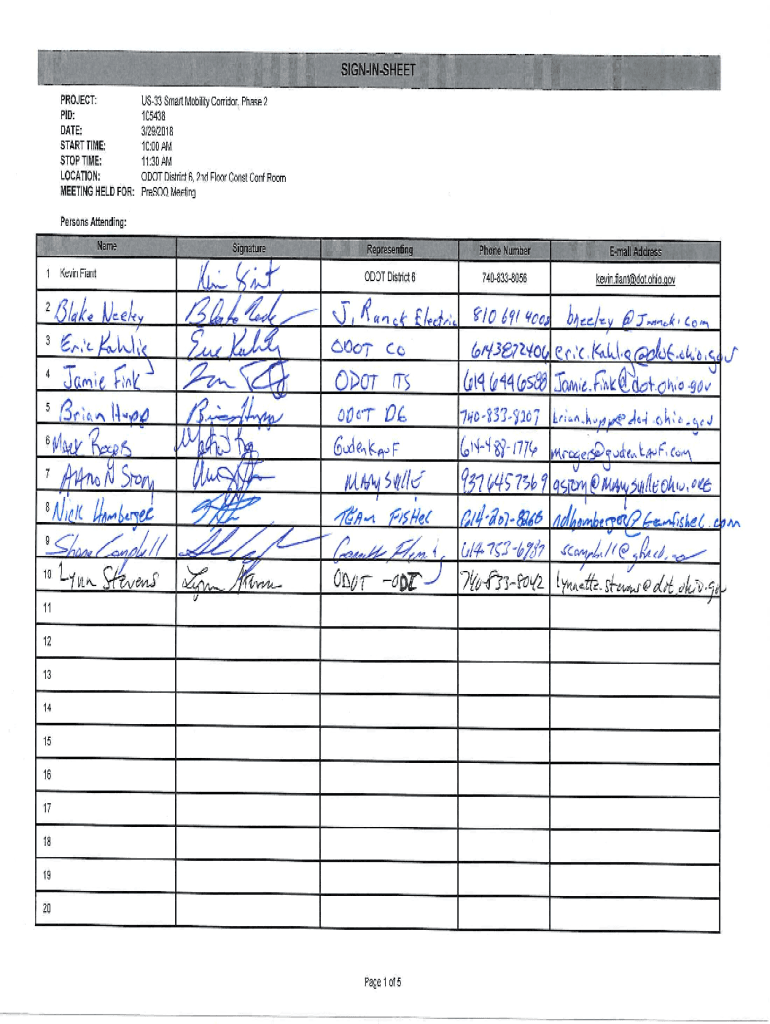 SIGN-IN-SHEET
PROJECT: US-33 Smart Mobility Corridor, Phase 2
PID: 105438
DATE: 3/29/2018
START TIME: 10:00 AM
STOP TIME: 11:30 AM
LOCATION: ODOT District 6, 2nd Floor Const Conf Room
MEETING HELD FOR: PreSOQ Meeting
Persons Attending:
Name Signature Representing Phone Number E-mail Address
1 Kevin Fiant ODOT District 6 740-833-8056 kevin.fiant@dot.ohio.gov
2 Blake Neeley J. Ranck Electric 810 691 4008 bneeley@Jranck.com
3 Eric Kahlig Eric Kahlig ODOT CO 6143872406 eric.Kahlig@dot.ohio.gov
4 Jamie Fink ODOT ITS 614 644 6588 Jamie.Fink@dot.ohio.gov
5 Brian Hupp Brian Hupp ODOT D6 740-833-8207 brian.hupp@dot.ohio.gov
6 Mark Rogers GudenKauF 614-488-1776 mrogers@gudenkauf.com
7 AARON Story MARYSVILLE 937 645 7369
8 Nick Hamberger TEAM FISHEL ndhamberger@teamfishel.com
9 Shane Campbell 614-753-6987
10 Lynn Stevens Lynn Stevens ODOT 740-833-8042 lynnette.stevens@dot.ohio.gov
11
12
13
14
15
16
17
18
19
20
Page 1 of 5